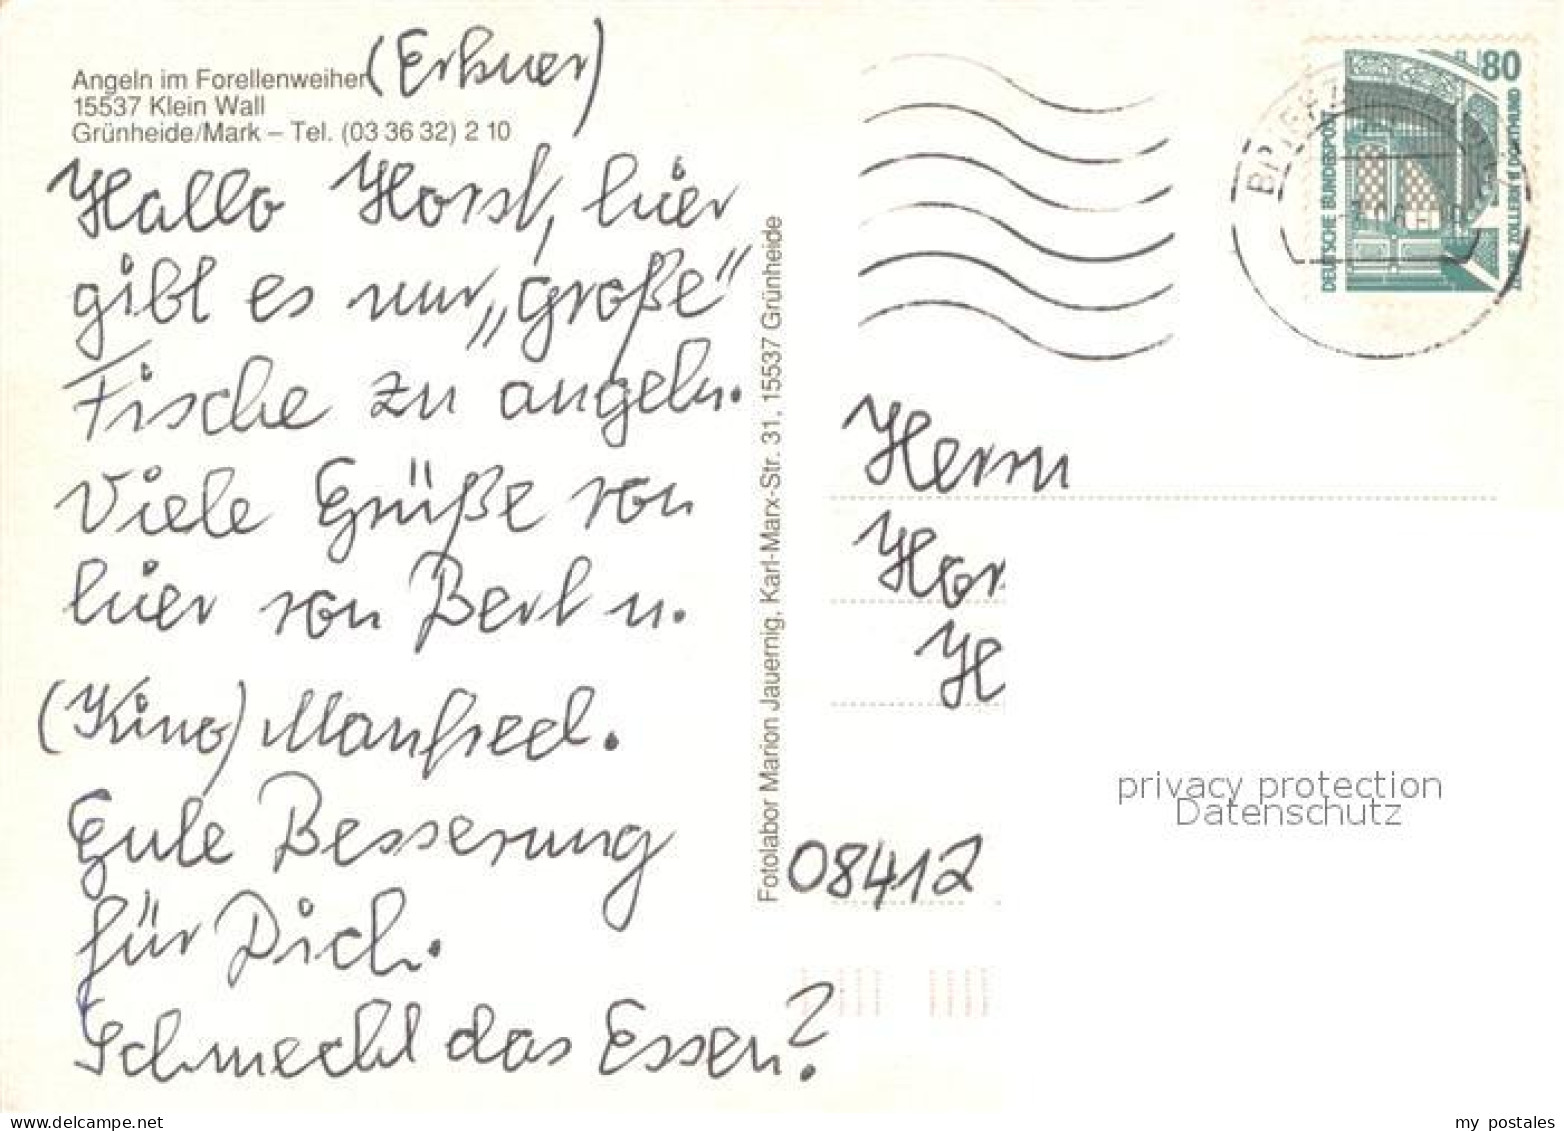 (Erkner)
Angeln im Forellenweiher
15537 Klein Wall
Grünheide/Mark – Tel. (03 36 32) 2 10
Hallo Horst, hier
gibt es nur „große“
Fische zu angeln.
Viele Grüße von
hier von Berl u.
(Kino) Manfred.
Gute Besserung
für Dich.
Schmeckt das Essen?
Fotolabor Marion Jauernig, Karl-Marx-Str. 31, 15537 Grünheide
80
DEUTSCHE BUNDESPOST
ZOLLERN II DORTMUND
Herrn
Hor
H
08412
privacy protection
Datenschutz
delcampe.net
my_postales